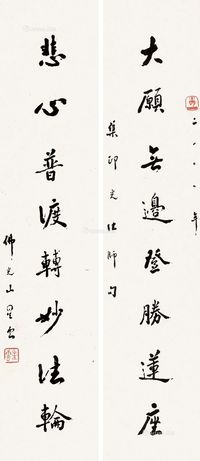 大願無邊登勝蓮座
二〇〇八年
集印光法師句
悲心普渡轉妙法輪
佛光山星雲